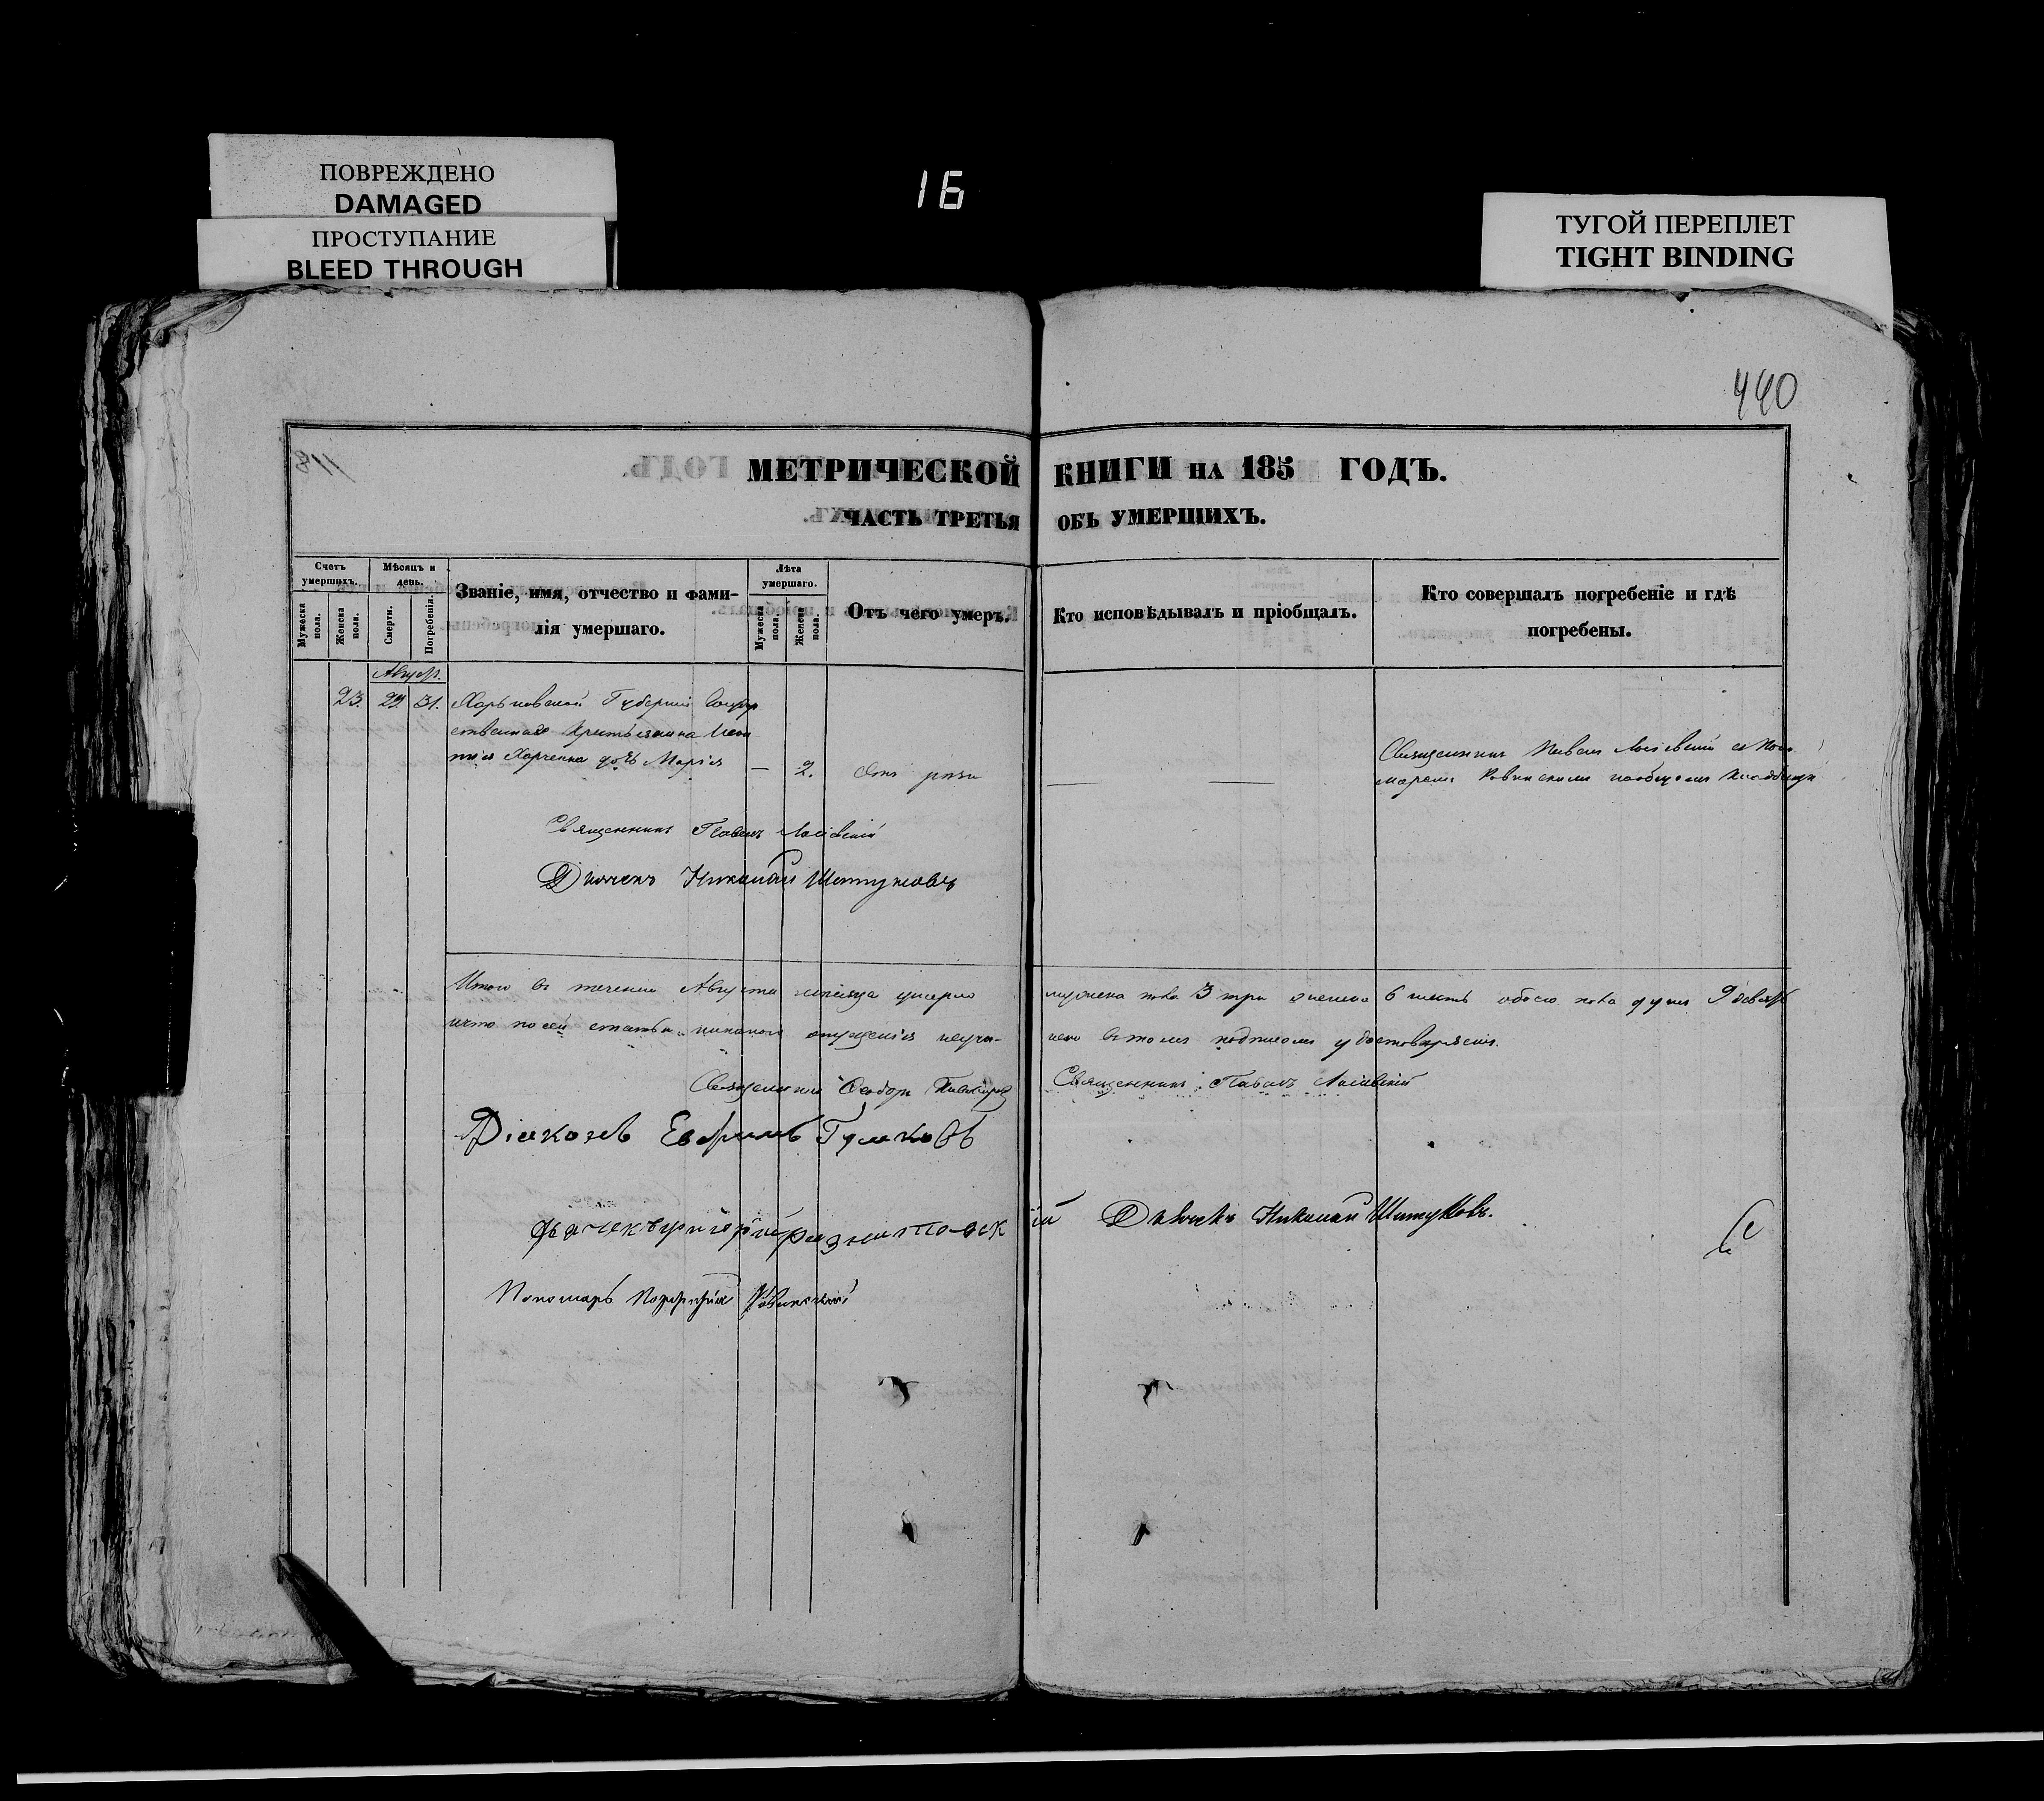 ПОВРЕЖДЕНО
DAMAGED
ПРОСТУПАНИЕ
BLEED THROUGH
16
ТУГОЙ ПЕРЕПЛЕТ
TIGHT BINDING
440
118
МЕТРИЧЕСКОЙ КНИГИ НА 185 ГОДЪ.
ЧАСТЬ ТРЕТЬЯ ОБЪ УМЕРШИХЪ.
Счетъ умершихъ.
Мужеска пола.
Женска пола.
Мѣсяцъ и день.
Смерти.
Погребенія.
Званіе, имя, отчество и фами-
лія умершаго.
Лѣта умершаго.
Мужеска пола.
Женска пола.
Отъ чего умеръ.
Кто исповѣдывалъ и пріобщалъ.
Кто совершалъ погребеніе и гдѣ
погребены.
Август.
23. 29. 31. Харьковской Губерніи Государ
ственнаго Крестьянина
Харченка дочь Марія — 2. —
Священникъ Павелъ
Священникъ Павелъ
Дьячекъ Николай Шатуновъ
Итого въ теченіи Августа месяца умерло мужеска пола 3 три женска 6 шесть обоего пола душъ 9 девять
что по сей статьи никакого опущенія неучи-
нено въ томъ подписомъ удостоверяемъ.
Священникъ Феодоръ Священникъ Павелъ
Діаконъ Гумковъ
Дьячекъ Григорій Дьячекъ Николай Шатуновъ.
Пономарь Порфирій Ровинскій